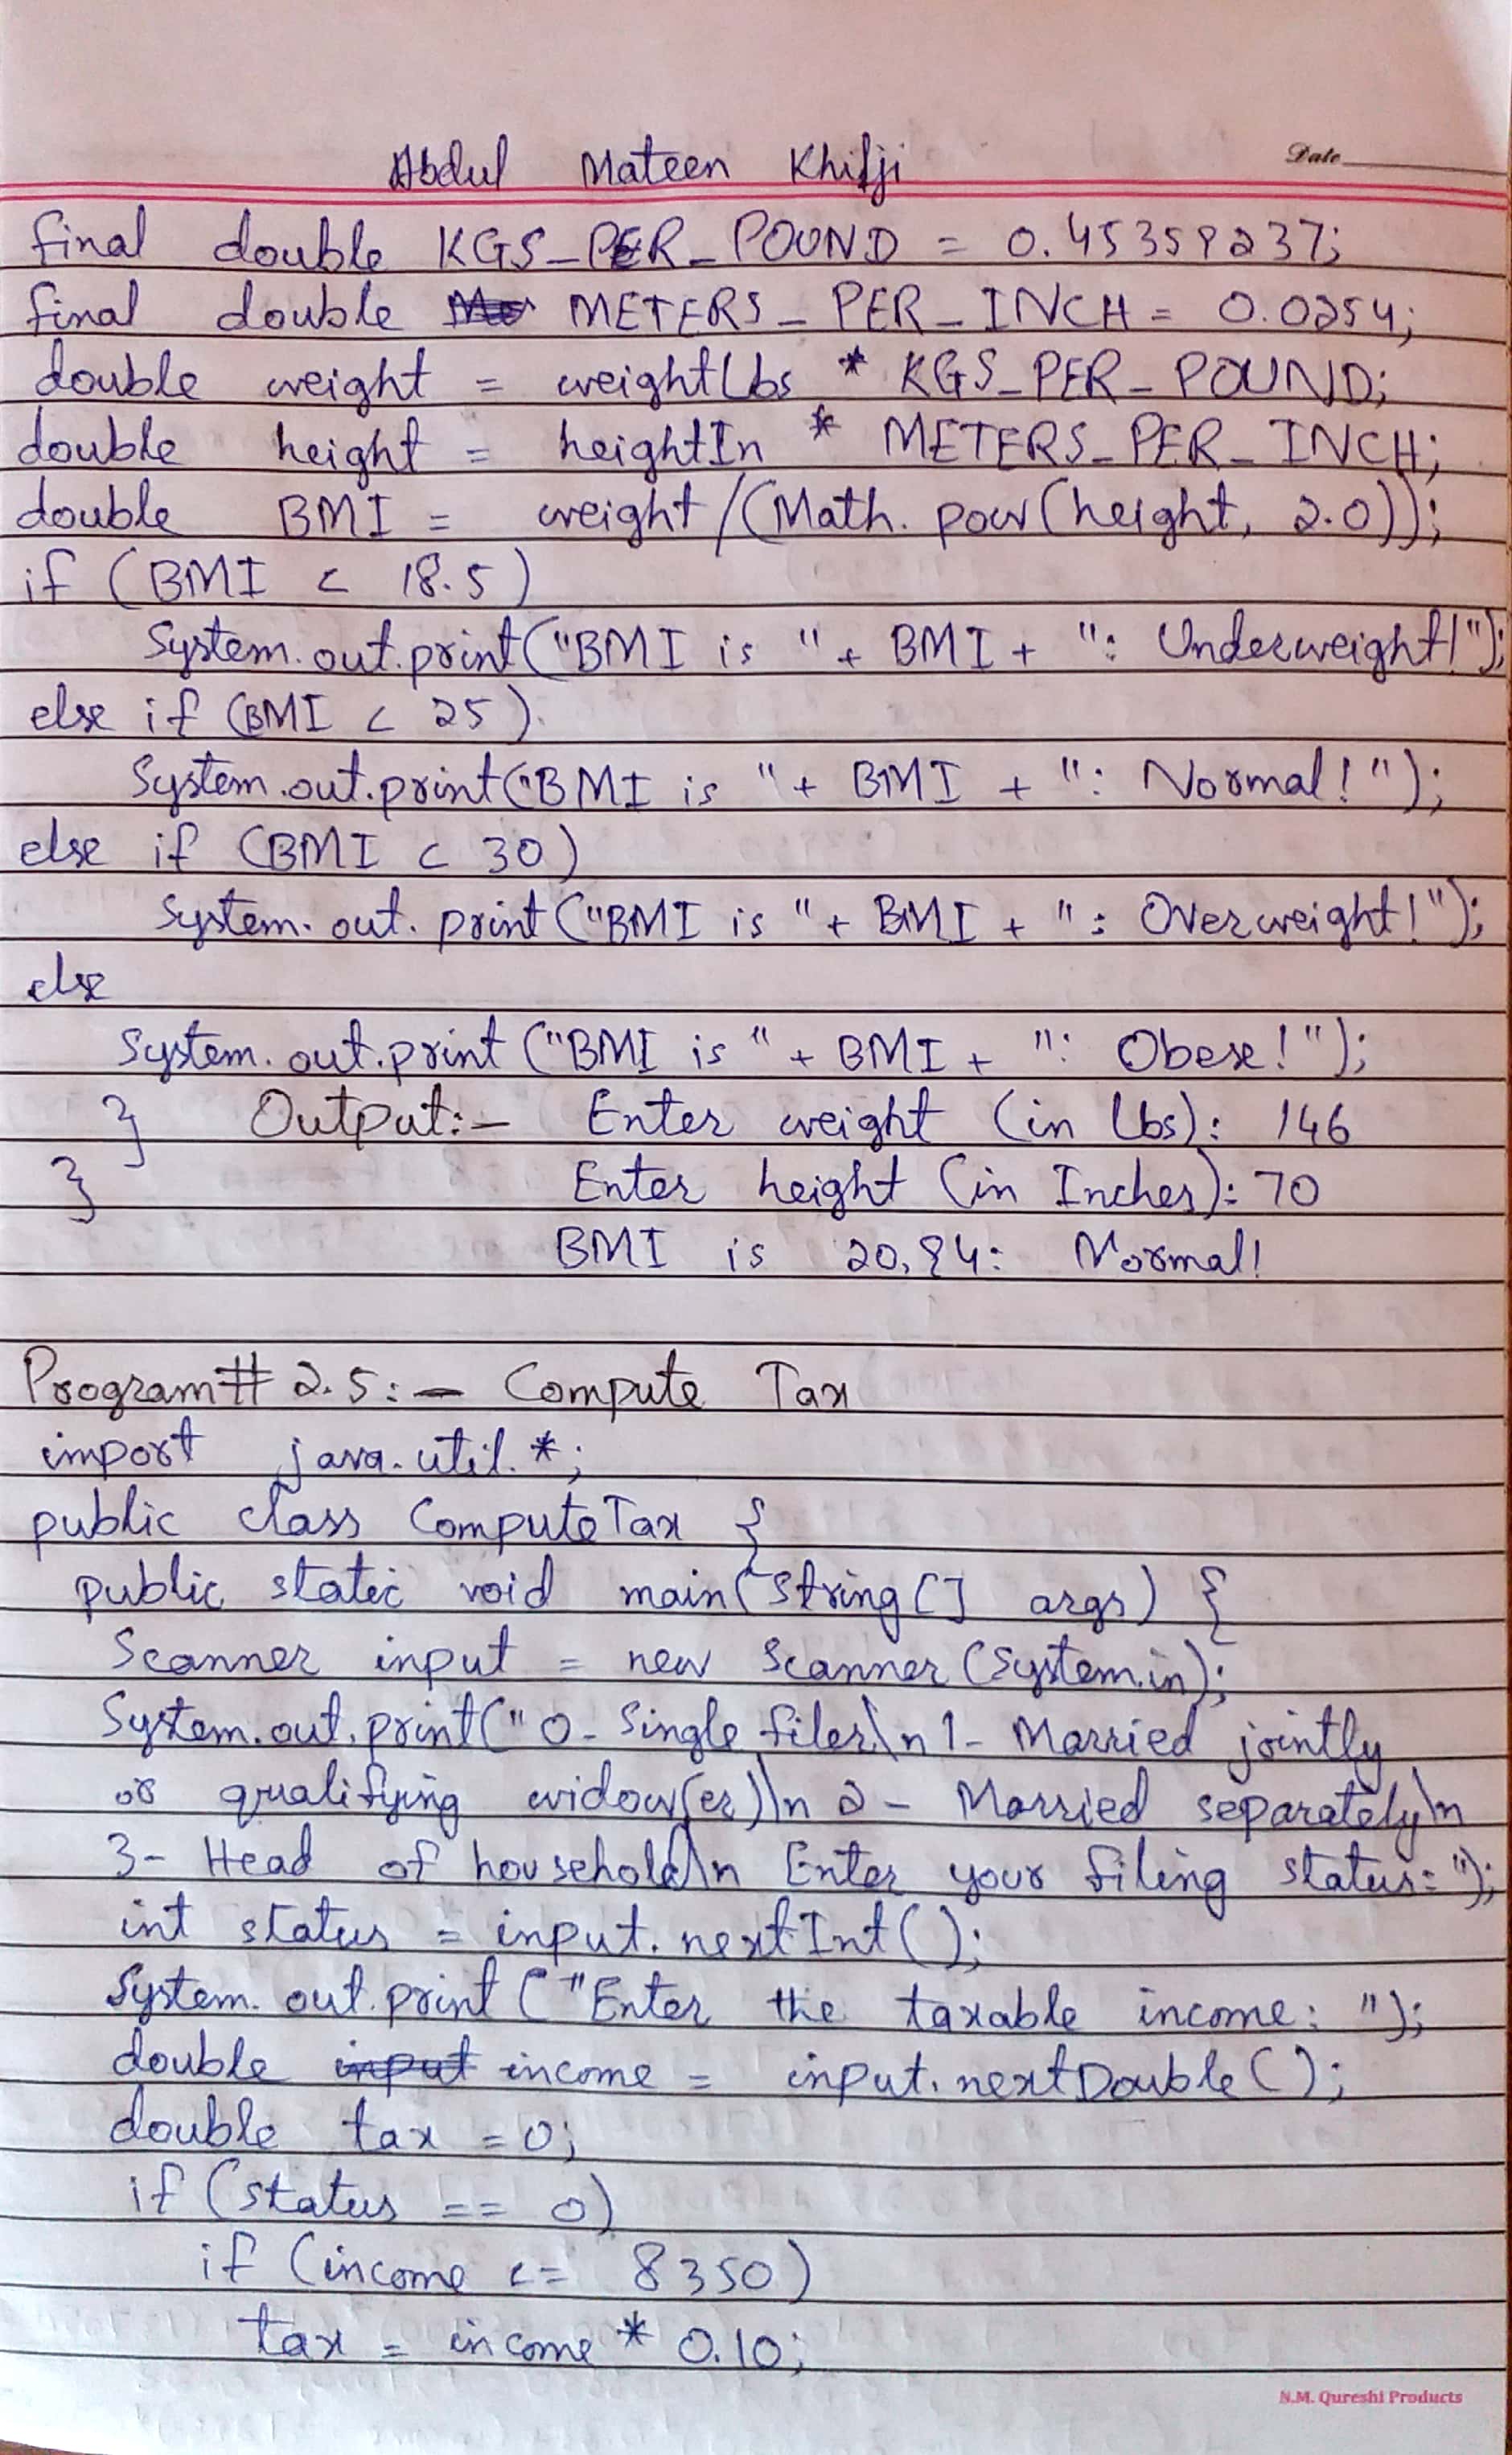 Abdul Mateen Khilji
Date
final double KGS_PER_POUND = 0.45359237;
final double METERS_PER_INCH = 0.0254;
double weight = weightLbs * KGS_PER_POUND;
double height = heightIn * METERS_PER_INCH;
double BMI = weight/(Math.pow(height, 2.0));
if (BMI < 18.5)
System.out.print("BMI is " + BMI + ": Underweight!");
else if (BMI < 25)
System.out.print("BMI is " + BMI + ": Normal!");
else if (BMI < 30)
System.out.print("BMI is " + BMI + ": Overweight!");
else
System.out.print("BMI is " + BMI + ": Obese!");
} Output:- Enter weight (in lbs): 146
} Enter height (in Inches): 70
BMI is 20.94: Normal!
Program# 2.5:- Compute Tax
import java.util.*;
public class ComputeTax {
public static void main(String[] args) {
Scanner input = new Scanner(System.in);
System.out.print("0- Single filer\n1- Married jointly
or qualifying widow(er)\n2- Married separately\n
3- Head of household\n Enter your filing status: ");
int status = input.nextInt();
System.out.print("Enter the taxable income: ");
double input income = input.nextDouble();
double tax = 0;
if (status == 0)
if (income <= 8350)
tax = income * 0.10;
N.M. Qureshi Products